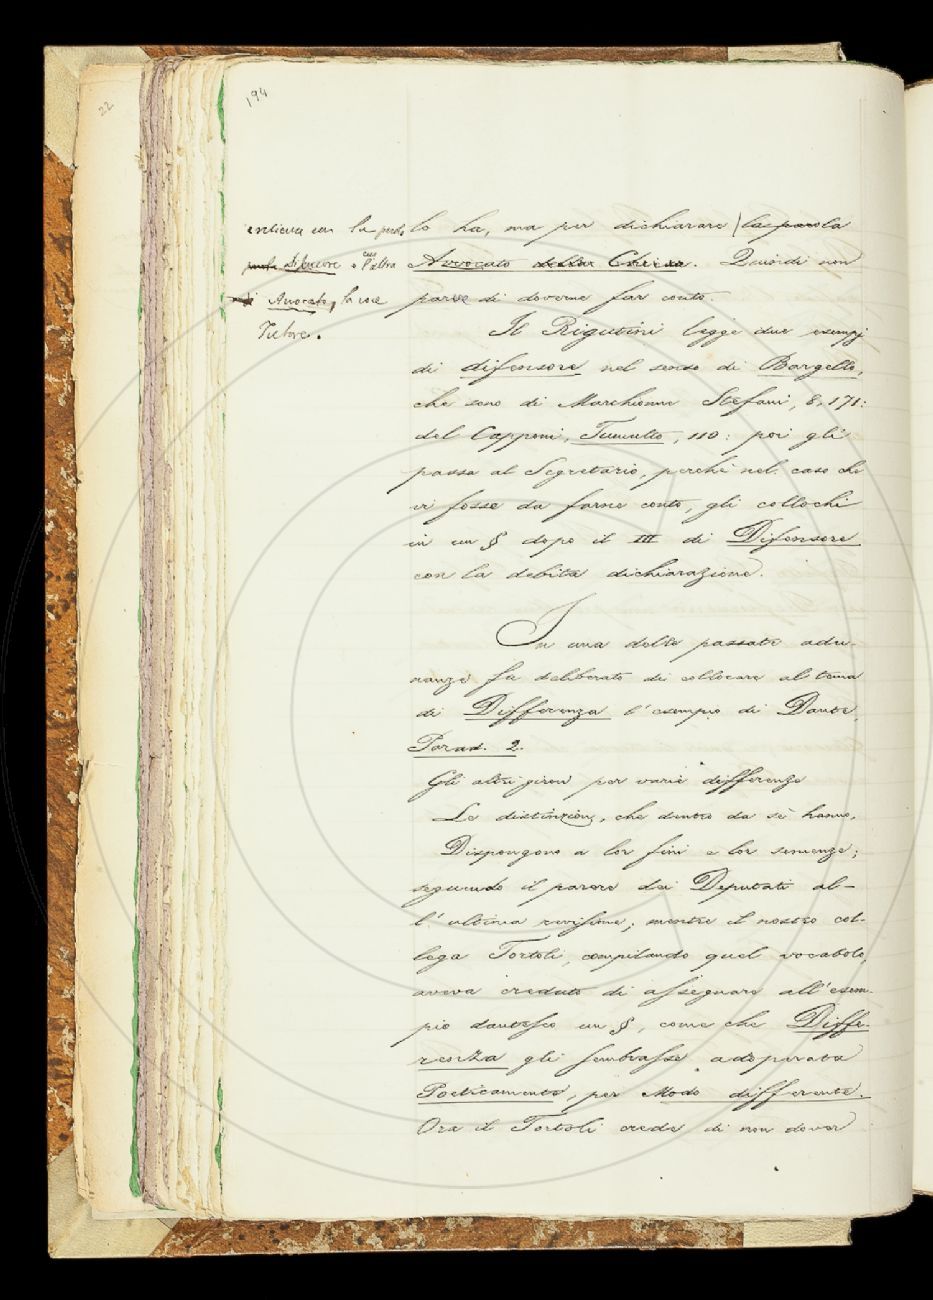 22
194
lo ha, ma per dichiarare | la parola
Avvocato della Chiesa. Quindi non
parve di doverne far conto.
insieme con la parola
Difensore e l'altra
di Avvocato, la voce
Tutore.
Il Rigutini legge due esempj
di difensore nel senso di Bargello,
che sono di Marchionne Stefani, 8, 171:
del Capponi, Tumulto, 110: poi gli
passa al Segretario, perchè nel caso che
vi fosse da farne conto, gli collochi
in un § dopo il III di Difensore
con la debita dichiarazione.
In una delle passate adu-
nanze fu deliberato di collocare al tema
di Differenza l'esempio di Dante,
Parad. 2.
Gli altri giron per varie differenze
Le distinzion, che dentro da sè hanno,
Dispongono a lor fini e lor semenze;
seguendo il parere dei Deputati al-
l'ultima revisione; mentre il nostro col-
lega Tortoli, compilando quel vocabolo,
aveva creduto di assegnare all'esem-
pio dantesco un §, come che Diffe-
renza gli sembrasse adoperata
Poeticamente, per Modo differente.
Ora il Tortoli crede di non dover